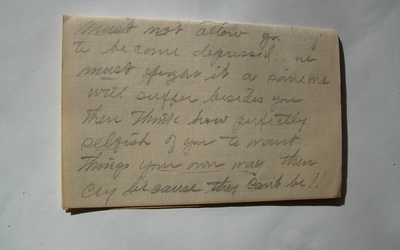 must not allow
to become depressed.
must fight it as someone
will suffer besides you
then think how perfectly
selfish of you to want
things your own way then
cry because they can't be!!